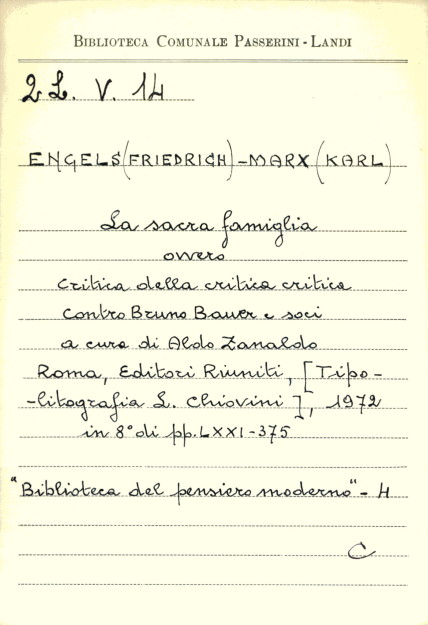 BIBLIOTECA COMUNALE PASSERINI-LANDI
2L. V. 14
ENGELS (FRIEDRICH) - MARX (KARL)
La sacra famiglia
ovvero
Critica della critica critica
contro Bruno Bauer e soci
a cura di Aldo Zanaldo
Roma, Editori Riuniti, [Tipo-
-litografia L. Chiovini], 1972
in 8° di pp. LXXI-375
"Biblioteca del pensiero moderno" - 4
C